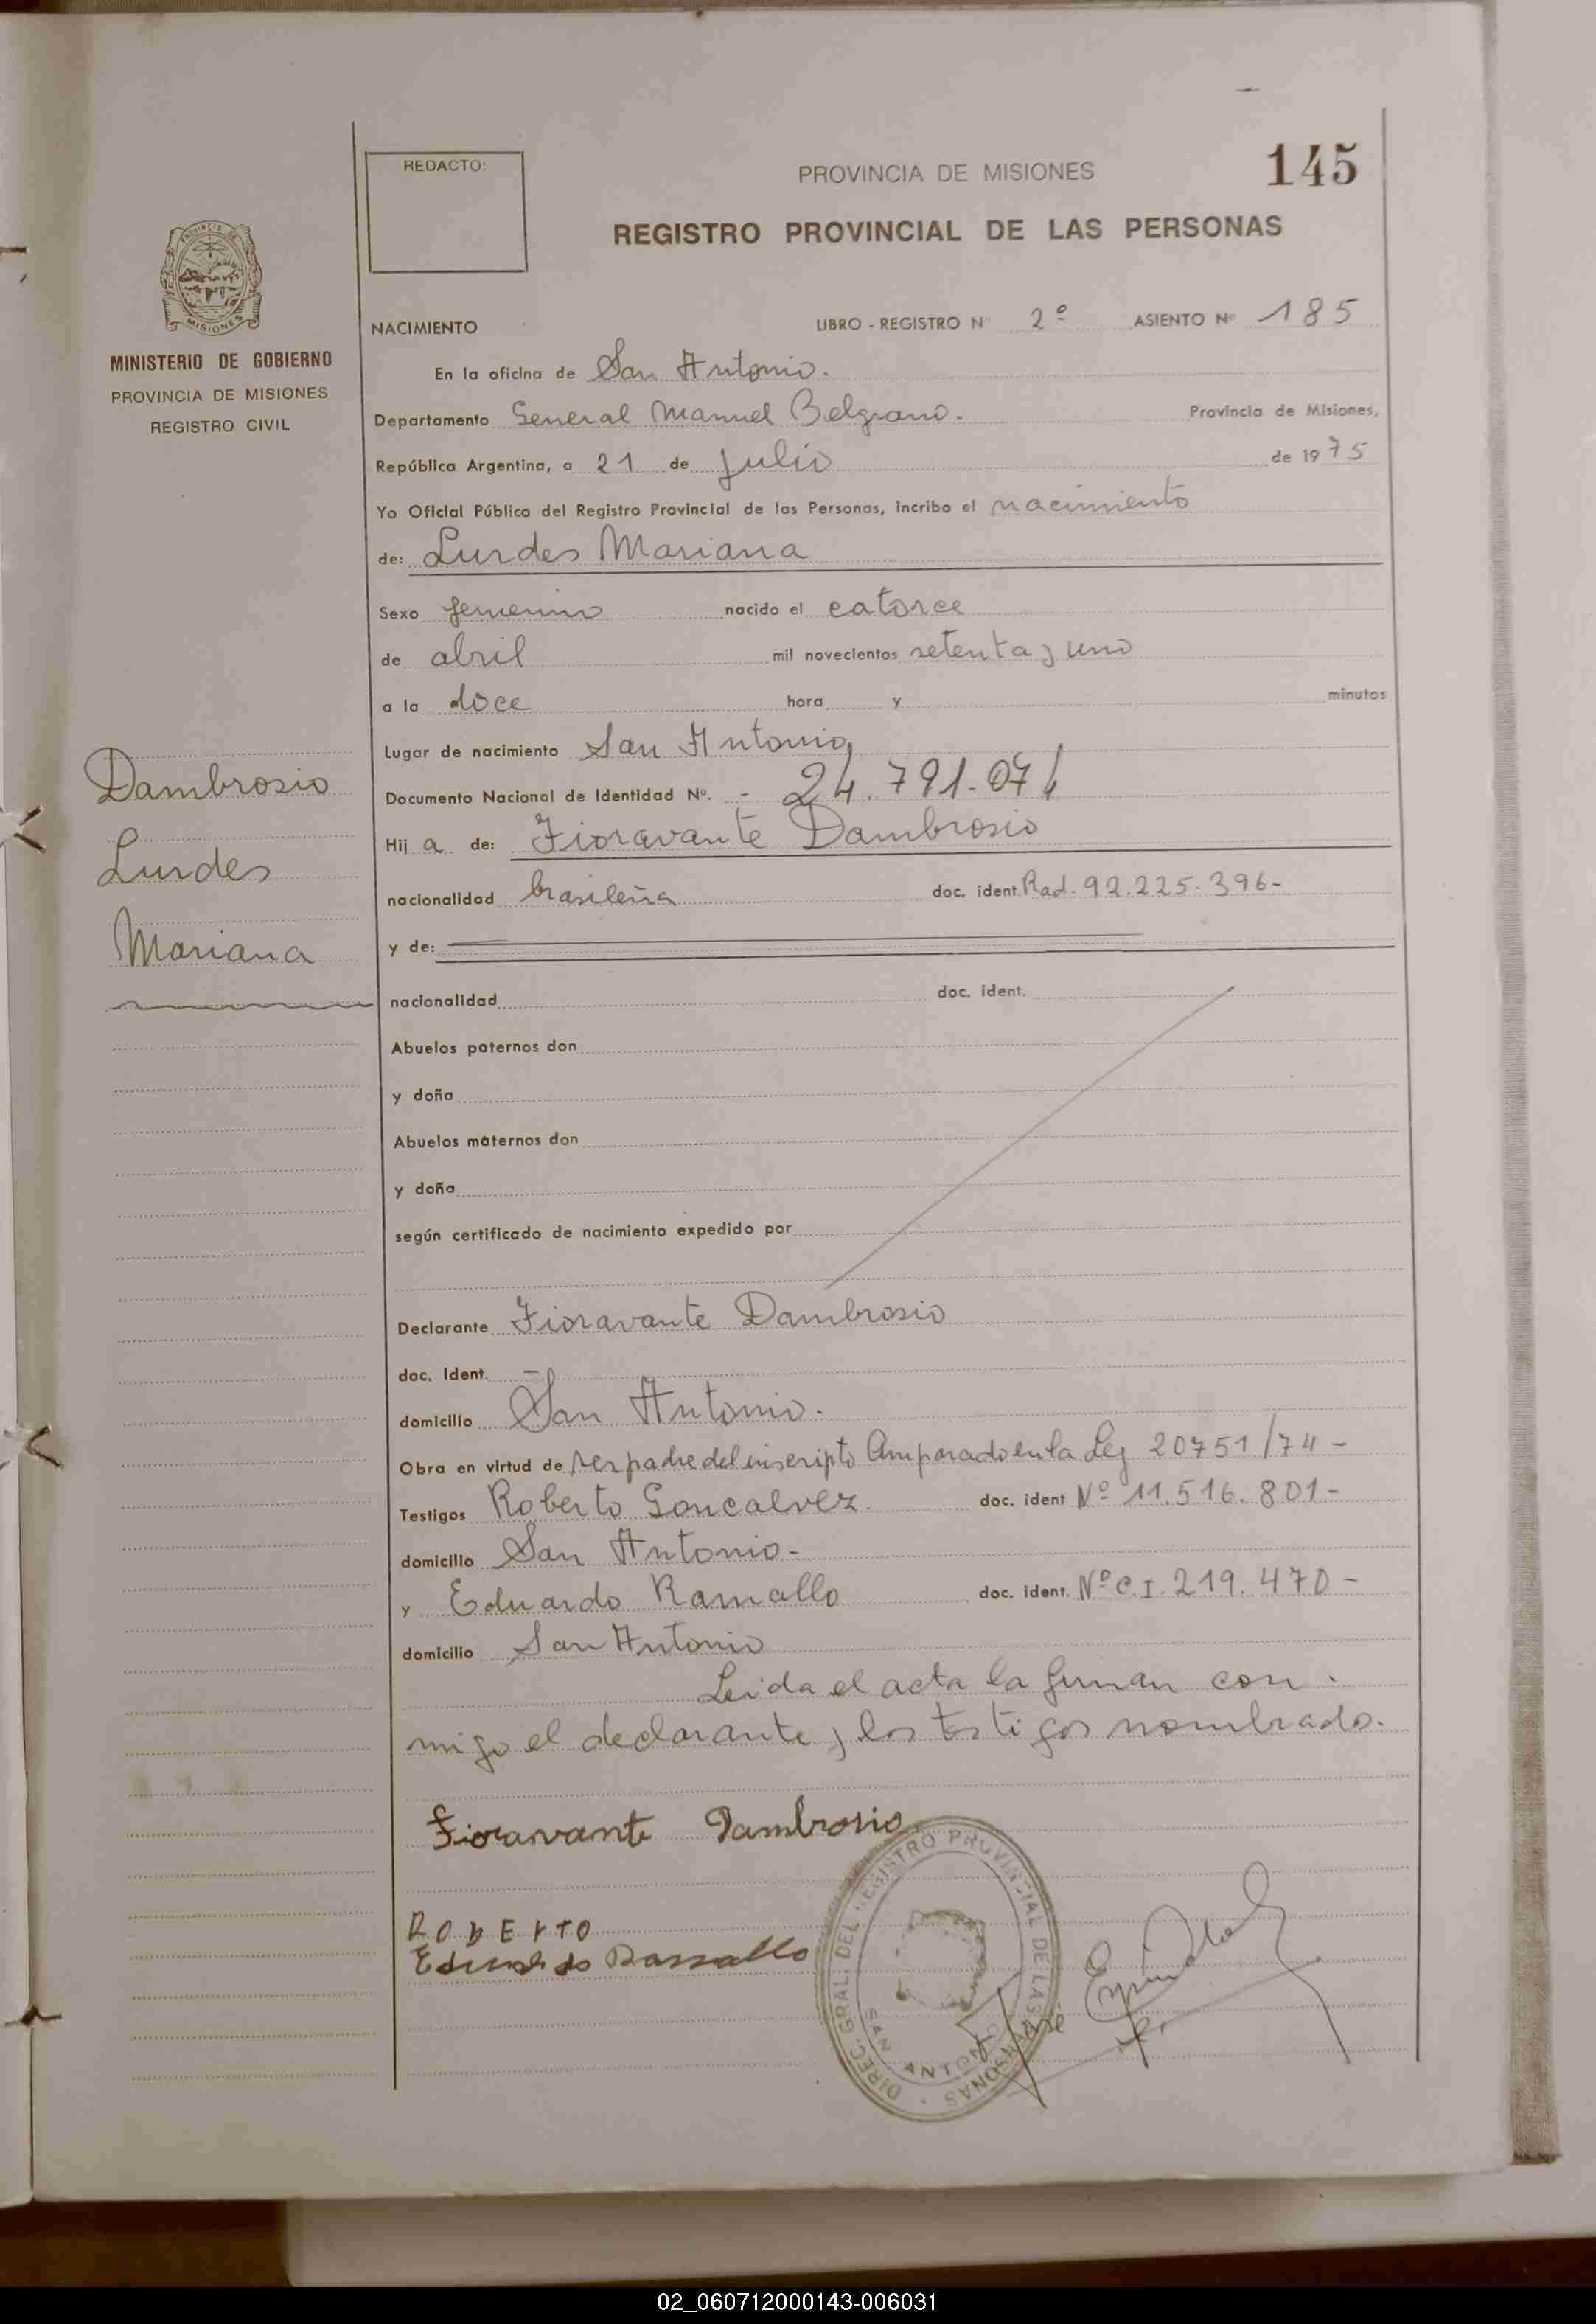 145
REDACTO:
PROVINCIA DE MISIONES
REGISTRO PROVINCIAL DE LAS PERSONAS
MISIONES
MINISTERIO DE GOBIERNO
PROVINCIA DE MISIONES
REGISTRO CIVIL
NACIMIENTO LIBRO - REGISTRO Nº 2º ASIENTO Nº 185
En la oficina de San Antonio.
Departamento General Manuel Belgrano. Provincia de Misiones,
República Argentina, a 21 de julio de 1975
Yo Oficial Público del Registro Provincial de las Personas, incribo el nacimiento
de: Lurdes Mariana
Sexo femenino nacido el catorce
de abril mil novecientos setenta y uno
a la doce hora y minutos
Lugar de nacimiento San Antonio
Documento Nacional de Identidad Nº. - 24.791.074
Dambrosio
Lurdes
Mariana
Hij a de: Fioravante Dambrosio
nacionalidad brasileña doc. ident. Rad. 92.225.396-
y de:
nacionalidad doc. ident.
Abuelos paternos don
y doña
Abuelos maternos don
y doña
según certificado de nacimiento expedido por
Declarante Fioravante Dambrosio
doc. Ident. —
domicilio San Antonio.
Obra en virtud de ser padre del inscripto Amparado en la Ley 20751/74 -
Testigos Roberto Goncalvez doc. ident Nº 11.516.801-
domicilio San Antonio-
y Eduardo Ramallo doc. ident. Nº C.I. 219.470-
domicilio San Antonio
Leida el acta la firman con
migo el declarante y los testigos nombrado.
Fioravante Dambrosio
ROBERTO
Ramallo
DIREC. GRAL. DEL REGISTRO PROVINCIAL DE LAS PERSONAS
SAN ANTONIO
José Espindola
02_060712000143-006031